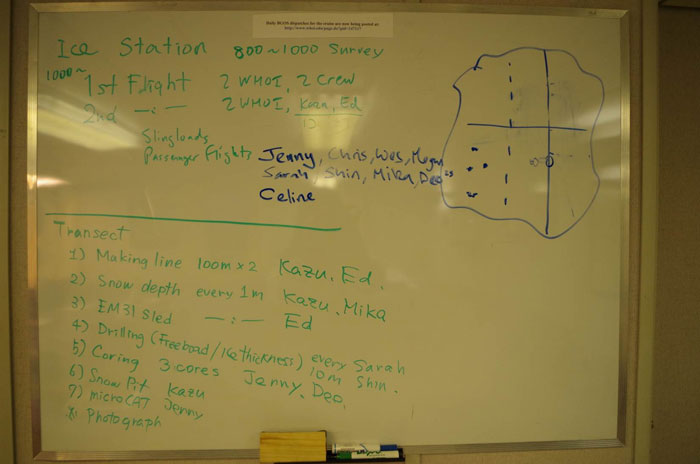 Daily BGOS dispatches for the cruise are now being posted at:
Ice Station 800~1000 Survey
1000~ 1st Flight 2 WHOI, 2 Crew
2nd —:— 2 WHOI, Kazu, Ed
Slingloads
Passenger Flights Jenny, Chris, Wes, Megan
Sarah Shin, Mika, Deo
Celine
Transect
1) Making line 100m x 2 Kazu, Ed.
2) Snow depth every 1m Kazu, Mika
3) EM31 Sled —:— Ed
4) Drilling (Freeboad/Ice thickness) every 10m Sarah Shin.
5) Coring 3 cores Jenny, Deo,
6) Snow Pit Kazu
7) microCAT Jenny
8) Photograph